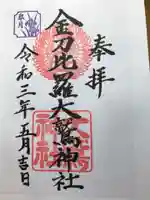 奉拝
金刀比羅大鷲神社
令和三年五月吉日
皐月